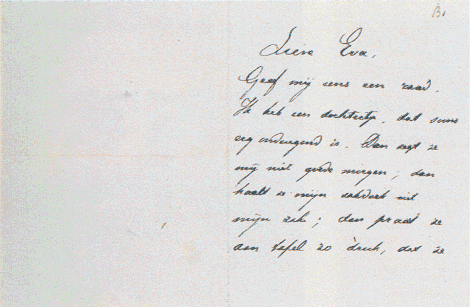 B.
Lieve Eva,
Geef mij eens een raad.
Ik heb een dochtertje, dat soms
erg ondeugend is. Dan zegt ze
mij niet goede morgen; dan
haalt ze mijn zakdoek uit
mijn zak; dan praat ze
aan tafel zo druk, dat ze